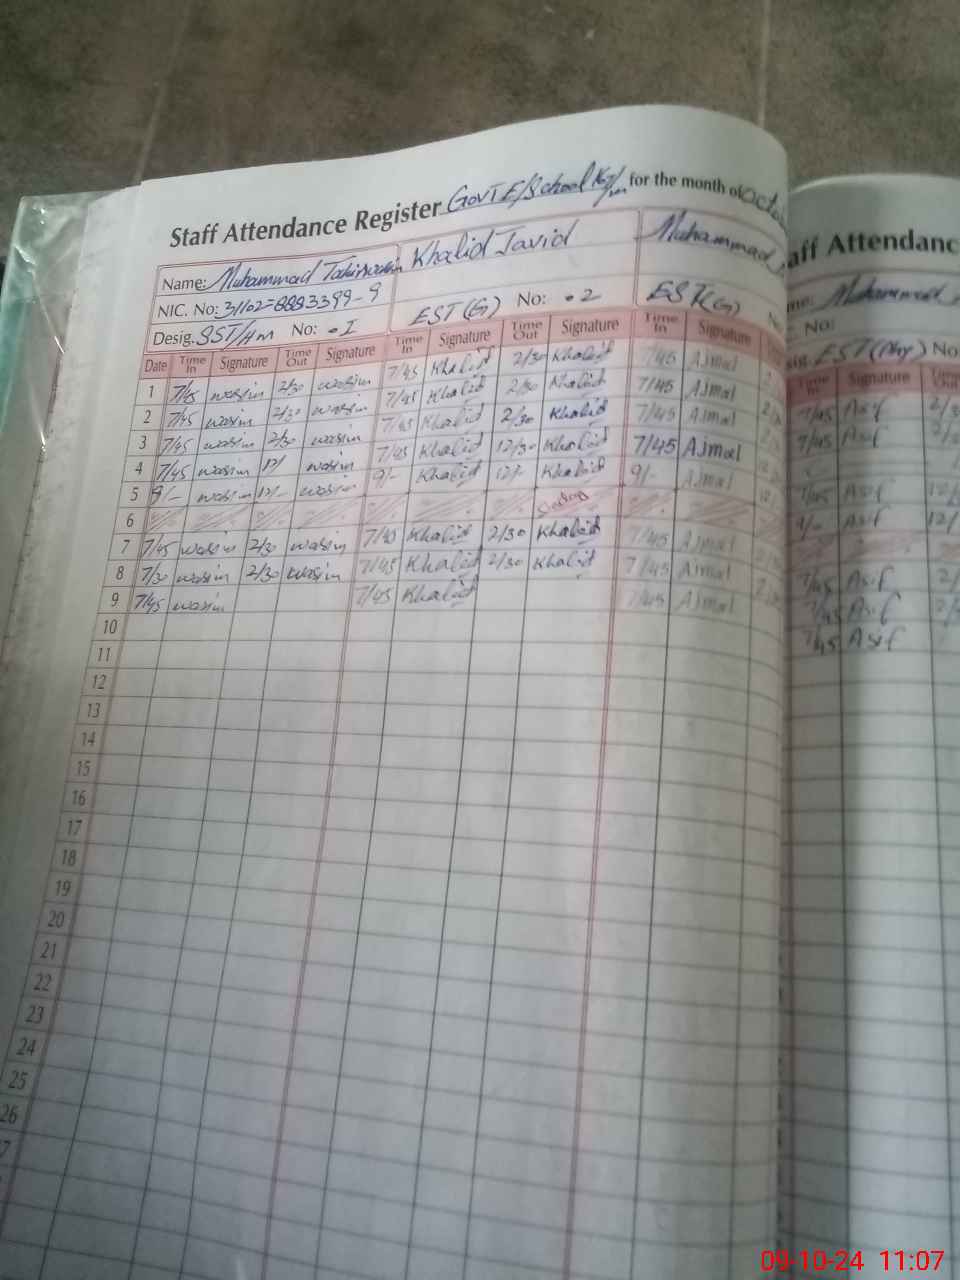 Staff Attendance Register Govt E/School for the month of Octo
Name: Muhammad Tahir Khalid Javid Muhammad
NIC. No: 31102-8883399-9
Desig. SST/Hm No: .1 EST (G) No: .2 EST (G) No
Date Time In Signature Time Out Signature Time In Signature Time Out Signature Time In Signature
1 7/45 wasim 2/30 wasim 7/45 Khalid 2/30 Khalid 7/45 Ajmal
2 7/45 wasim 2/30 wasim 7/45 Khalid 2/30 Khalid 7/45 Ajmal
3 7/45 wasim 2/30 wasim 7/45 Khalid 2/30 Khalid 7/45 Ajmal
4 7/45 wasim 12/ wasim 7/45 Khalid 12/30 Khalid 7/45 Ajmal
5 9/- wasim 12/- wasim 9/- Khalid 12/- Khalid 9/- Ajmal
6
7 7/45 wasim 2/30 wasim 7/40 Khalid 2/30 Khalid 7/45 Ajmal
8 7/30 wasim 2/30 wasim 7/45 Khalid 2/30 Khalid 7/45 Ajmal
9 7/45 wasim 7/45 Khalid 7/45 Ajmal
10
11
12
13
14
15
16
17
18
19
20
21
22
23
24
25
26
7
aff Attendanc
me: Muhammad
No:
sig. EST (Phy) No
Time In Signature Time Out
7/45 Asif 2/3
7/45 Asif
7/45 Asif 12/
9/- Asif 12/
7/45 Asif 2/
7/45 Asif 2/
7/45 Asif
09-10-24 11:07